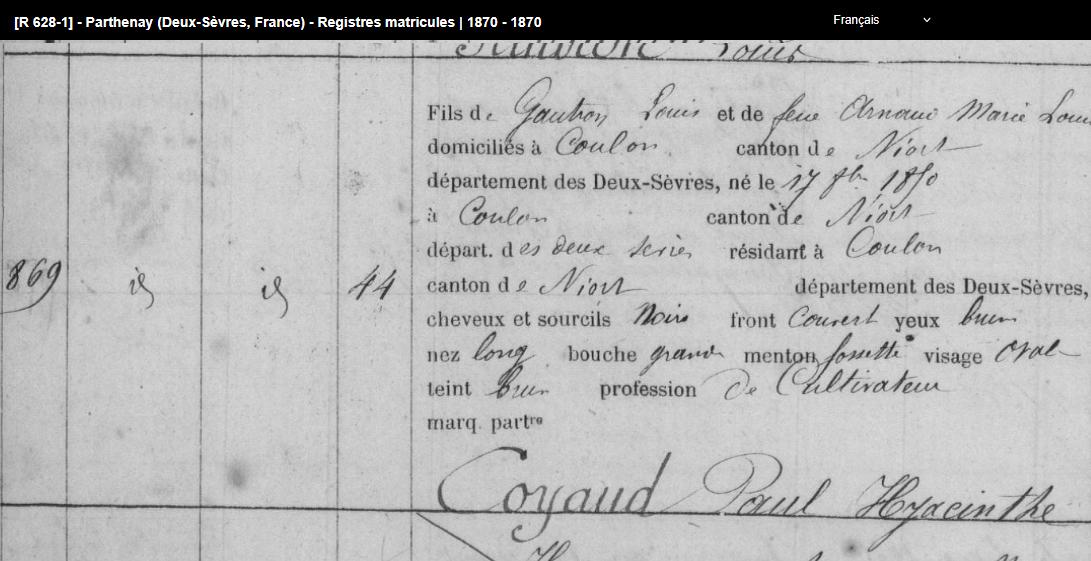 [R 628-1] - Parthenay (Deux-Sèvres, France) - Registres matricules | 1870 - 1870
Français
Louis
Fils de Gautron Louis et de feue Arnaud Marie Loui
domiciliés à Coulon canton de Niort
département des Deux-Sèvres, né le 17 8bre 1850
à Coulon canton de Niort
départ. des deux sevres résidant à Coulon
869 id id 44 canton de Niort département des Deux-Sèvres,
cheveux et sourcils Noirs front Couvert yeux brun
nez long bouche grande menton fossette visage oval
teint brun profession de Cultivateur
marq. partre
Coyaud Paul Hyacinthe